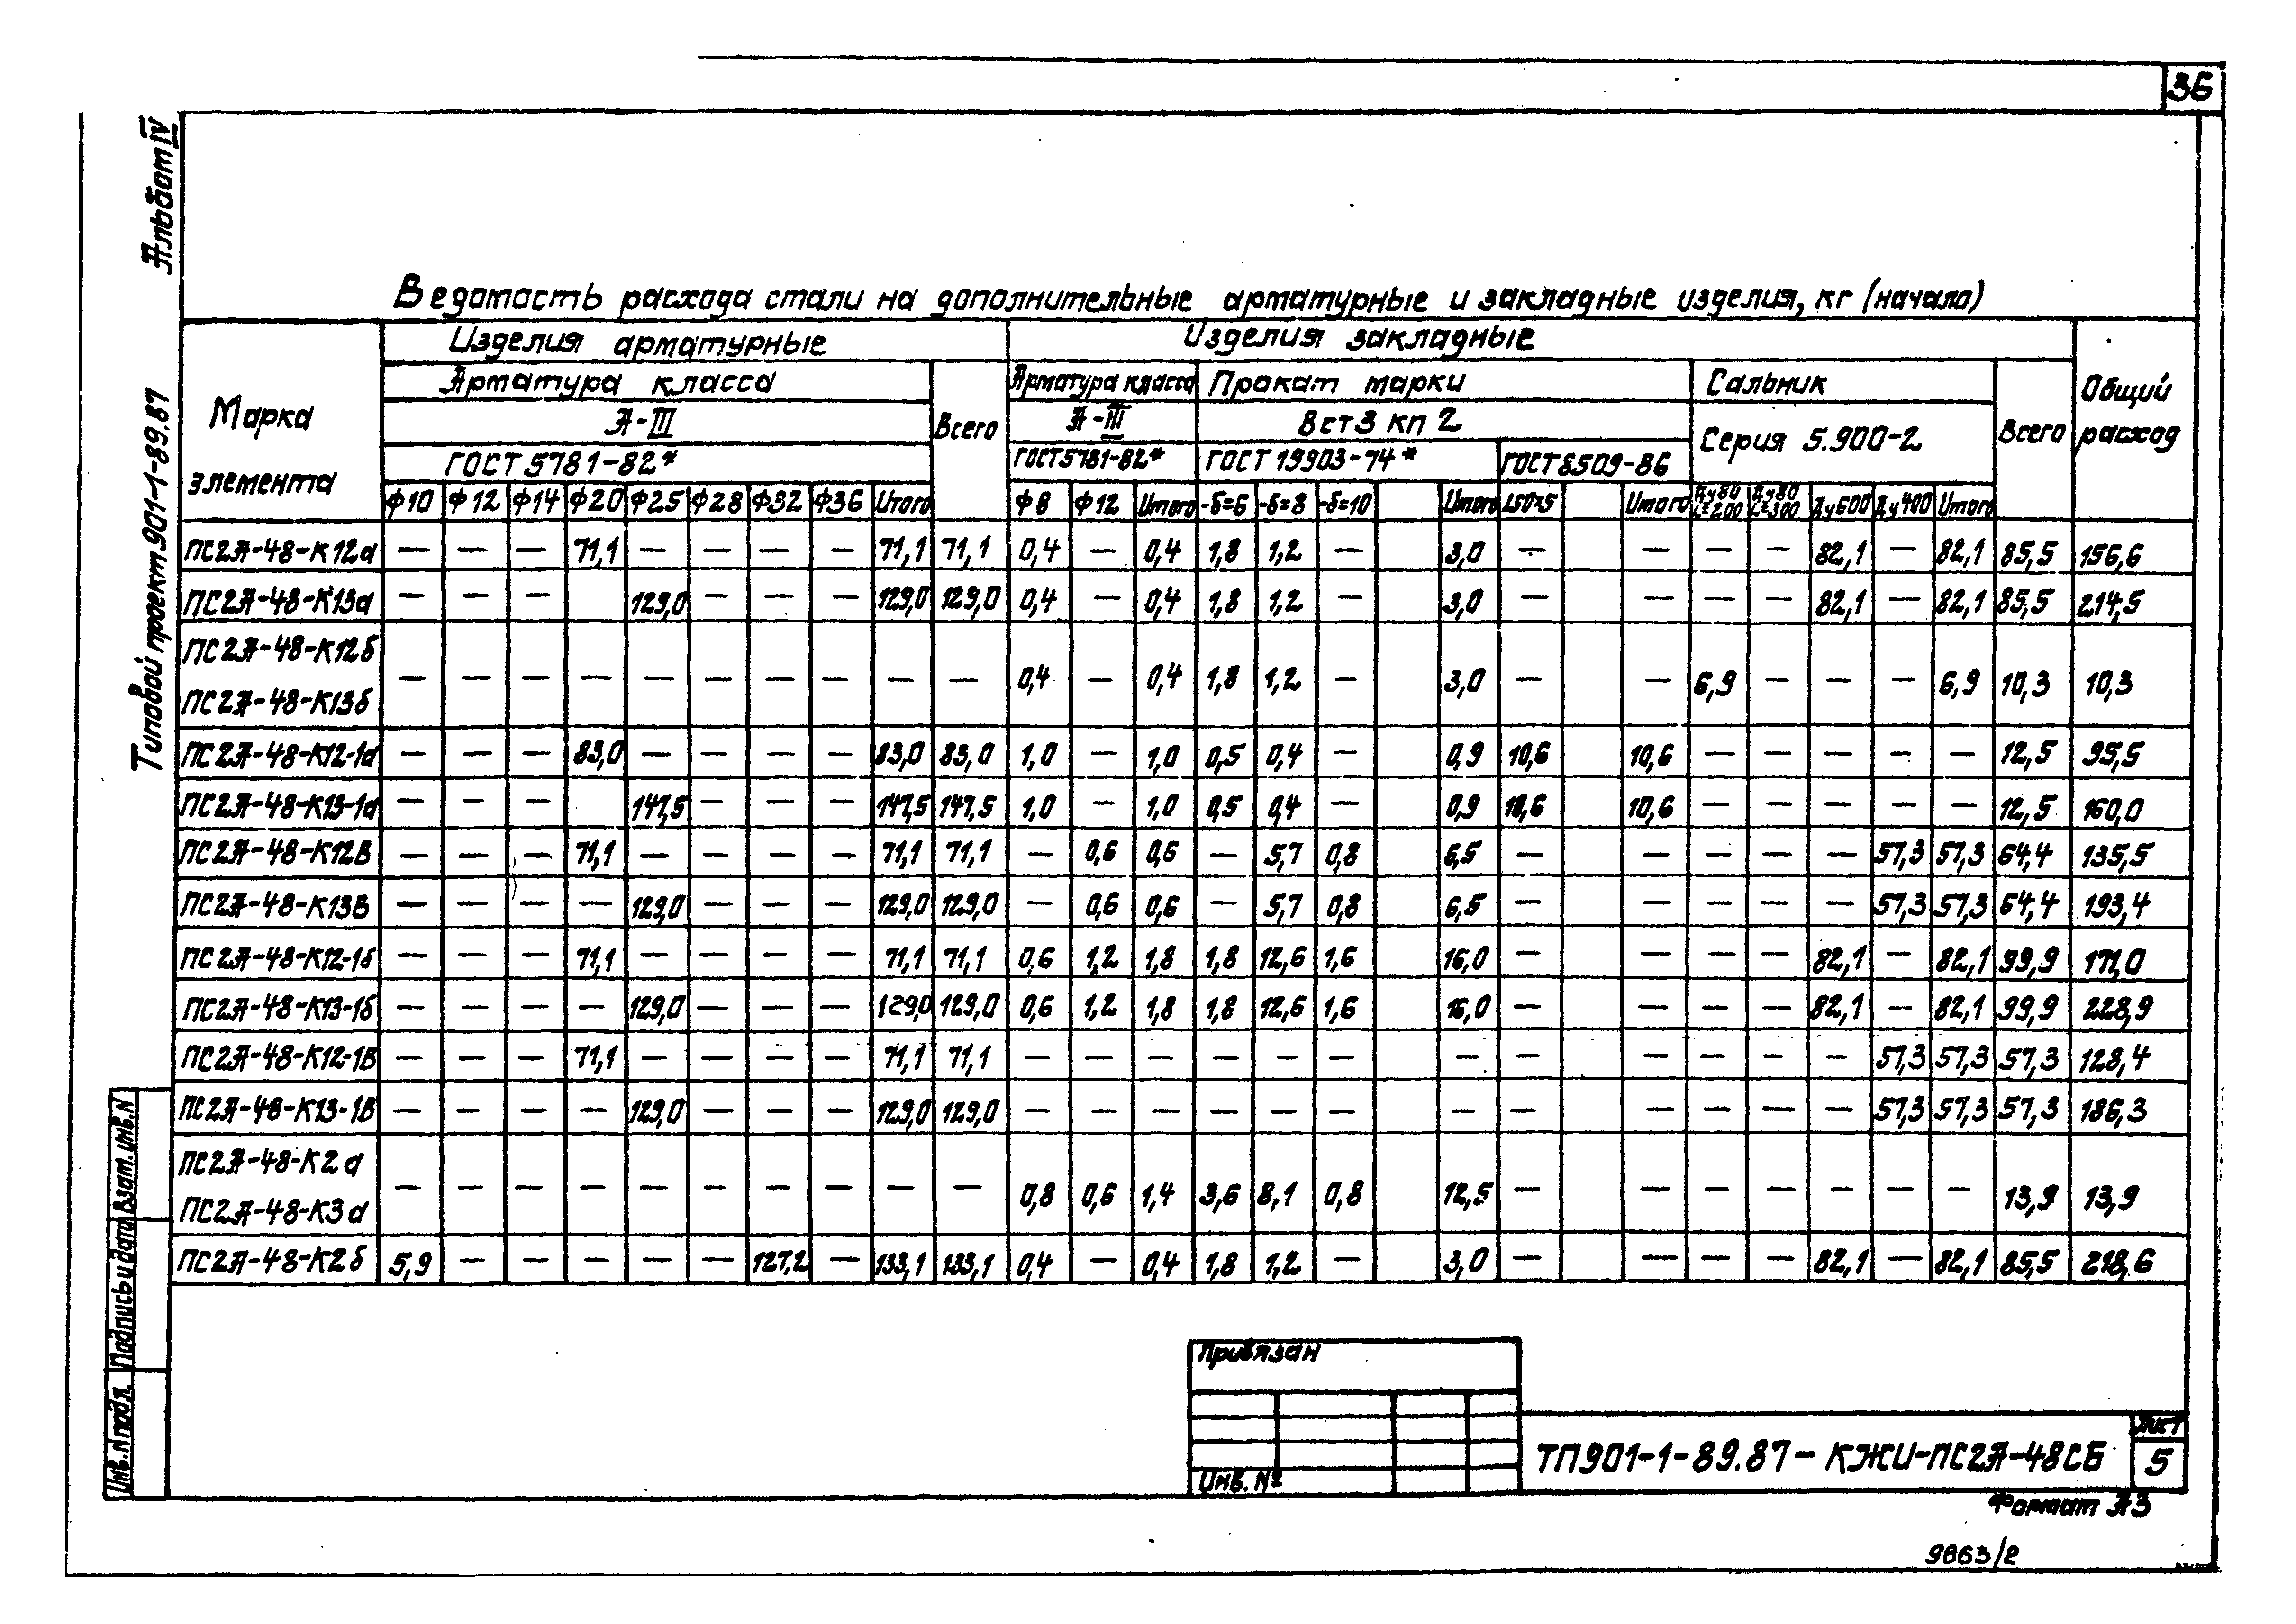 36
Альбом IV
Типовой проект 901-1-89.87
Ведомость расхода стали на дополнительные арматурные и закладные изделия, кг (начало)
Марка элемента
Изделия арматурные
Изделия закладные
Общий расход
Арматура класса
Всего
Арматура класса
Прокат марки
Сальник
Всего
А-III
А-III
Вст3 кп 2
Серия 5.900-2
ГОСТ 5781-82*
ГОСТ 5781-82*
ГОСТ 19903-74*
ГОСТ 8509-86
Ф10 Ф12 Ф14 Ф20 Ф25 Ф28 Ф32 Ф36 Итого Ф8 Ф12 Итого -δ=6 -δ=8 -δ=10 Итого L50×5 Итого Ду80 L=200 Ду80 L=300 Ду600 Ду400 Итого
ПС2А-48-К12а — — — 71,1 — — — — 71,1 71,1 0,4 — 0,4 1,8 1,2 — 3,0 — — — — 82,1 — 82,1 85,5 156,6
ПС2А-48-К13а — — — 129,0 — — — 129,0 129,0 0,4 — 0,4 1,8 1,2 — 3,0 — — — — 82,1 — 82,1 85,5 214,5
ПС2А-48-К12б
ПС2А-48-К13б — — — — — — — — — — 0,4 — 0,4 1,8 1,2 — 3,0 — — 6,9 — — — 6,9 10,3 10,3
ПС2А-48-К12-1а — — — 83,0 — — — — 83,0 83,0 1,0 — 1,0 0,5 0,4 — 0,9 10,6 10,6 — — — — — 12,5 95,5
ПС2А-48-К13-1а — — — 147,5 — — — 147,5 147,5 1,0 — 1,0 0,5 0,4 — 0,9 10,6 10,6 — — — — — 12,5 160,0
ПС2А-48-К12В — — — 71,1 — — — — 71,1 71,1 — 0,6 0,6 — 5,7 0,8 6,5 — — — — — 57,3 57,3 64,4 135,5
ПС2А-48-К13В — — — — 129,0 — — — 129,0 129,0 — 0,6 0,6 — 5,7 0,8 6,5 — — — — — 57,3 57,3 64,4 193,4
ПС2А-48-К12-1б — — — 71,1 — — — — 71,1 71,1 0,6 1,2 1,8 1,8 12,6 1,6 16,0 — — — — 82,1 — 82,1 99,9 171,0
ПС2А-48-К13-1б — — — — 129,0 — — — 129,0 129,0 0,6 1,2 1,8 1,8 12,6 1,6 16,0 — — — — 82,1 — 82,1 99,9 228,9
ПС2А-48-К12-1В — — — 71,1 — — — — 71,1 71,1 — — — — — — — — — — — — 57,3 57,3 57,3 128,4
ПС2А-48-К13-1В — — — — 129,0 — — — 129,0 129,0 — — — — — — — — — — — — 57,3 57,3 57,3 186,3
ПС2А-48-К2а
ПС2А-48-К3а — — — — — — — — — — 0,8 0,6 1,4 3,6 8,1 0,8 12,5 — — — — — — — 13,9 13,9
ПС2А-48-К2б 5,9 — — — — — 127,2 — 133,1 133,1 0,4 — 0,4 1,8 1,2 — 3,0 — — — — 82,1 — 82,1 85,5 218,6
Взам. инв. N
Подпись и дата
Инв. N подл.
Привязан
Инв. №
ТП901-1-89.87-КЖИ-ПС2А-48СБ
Лист
5
Формат А3
9863/2